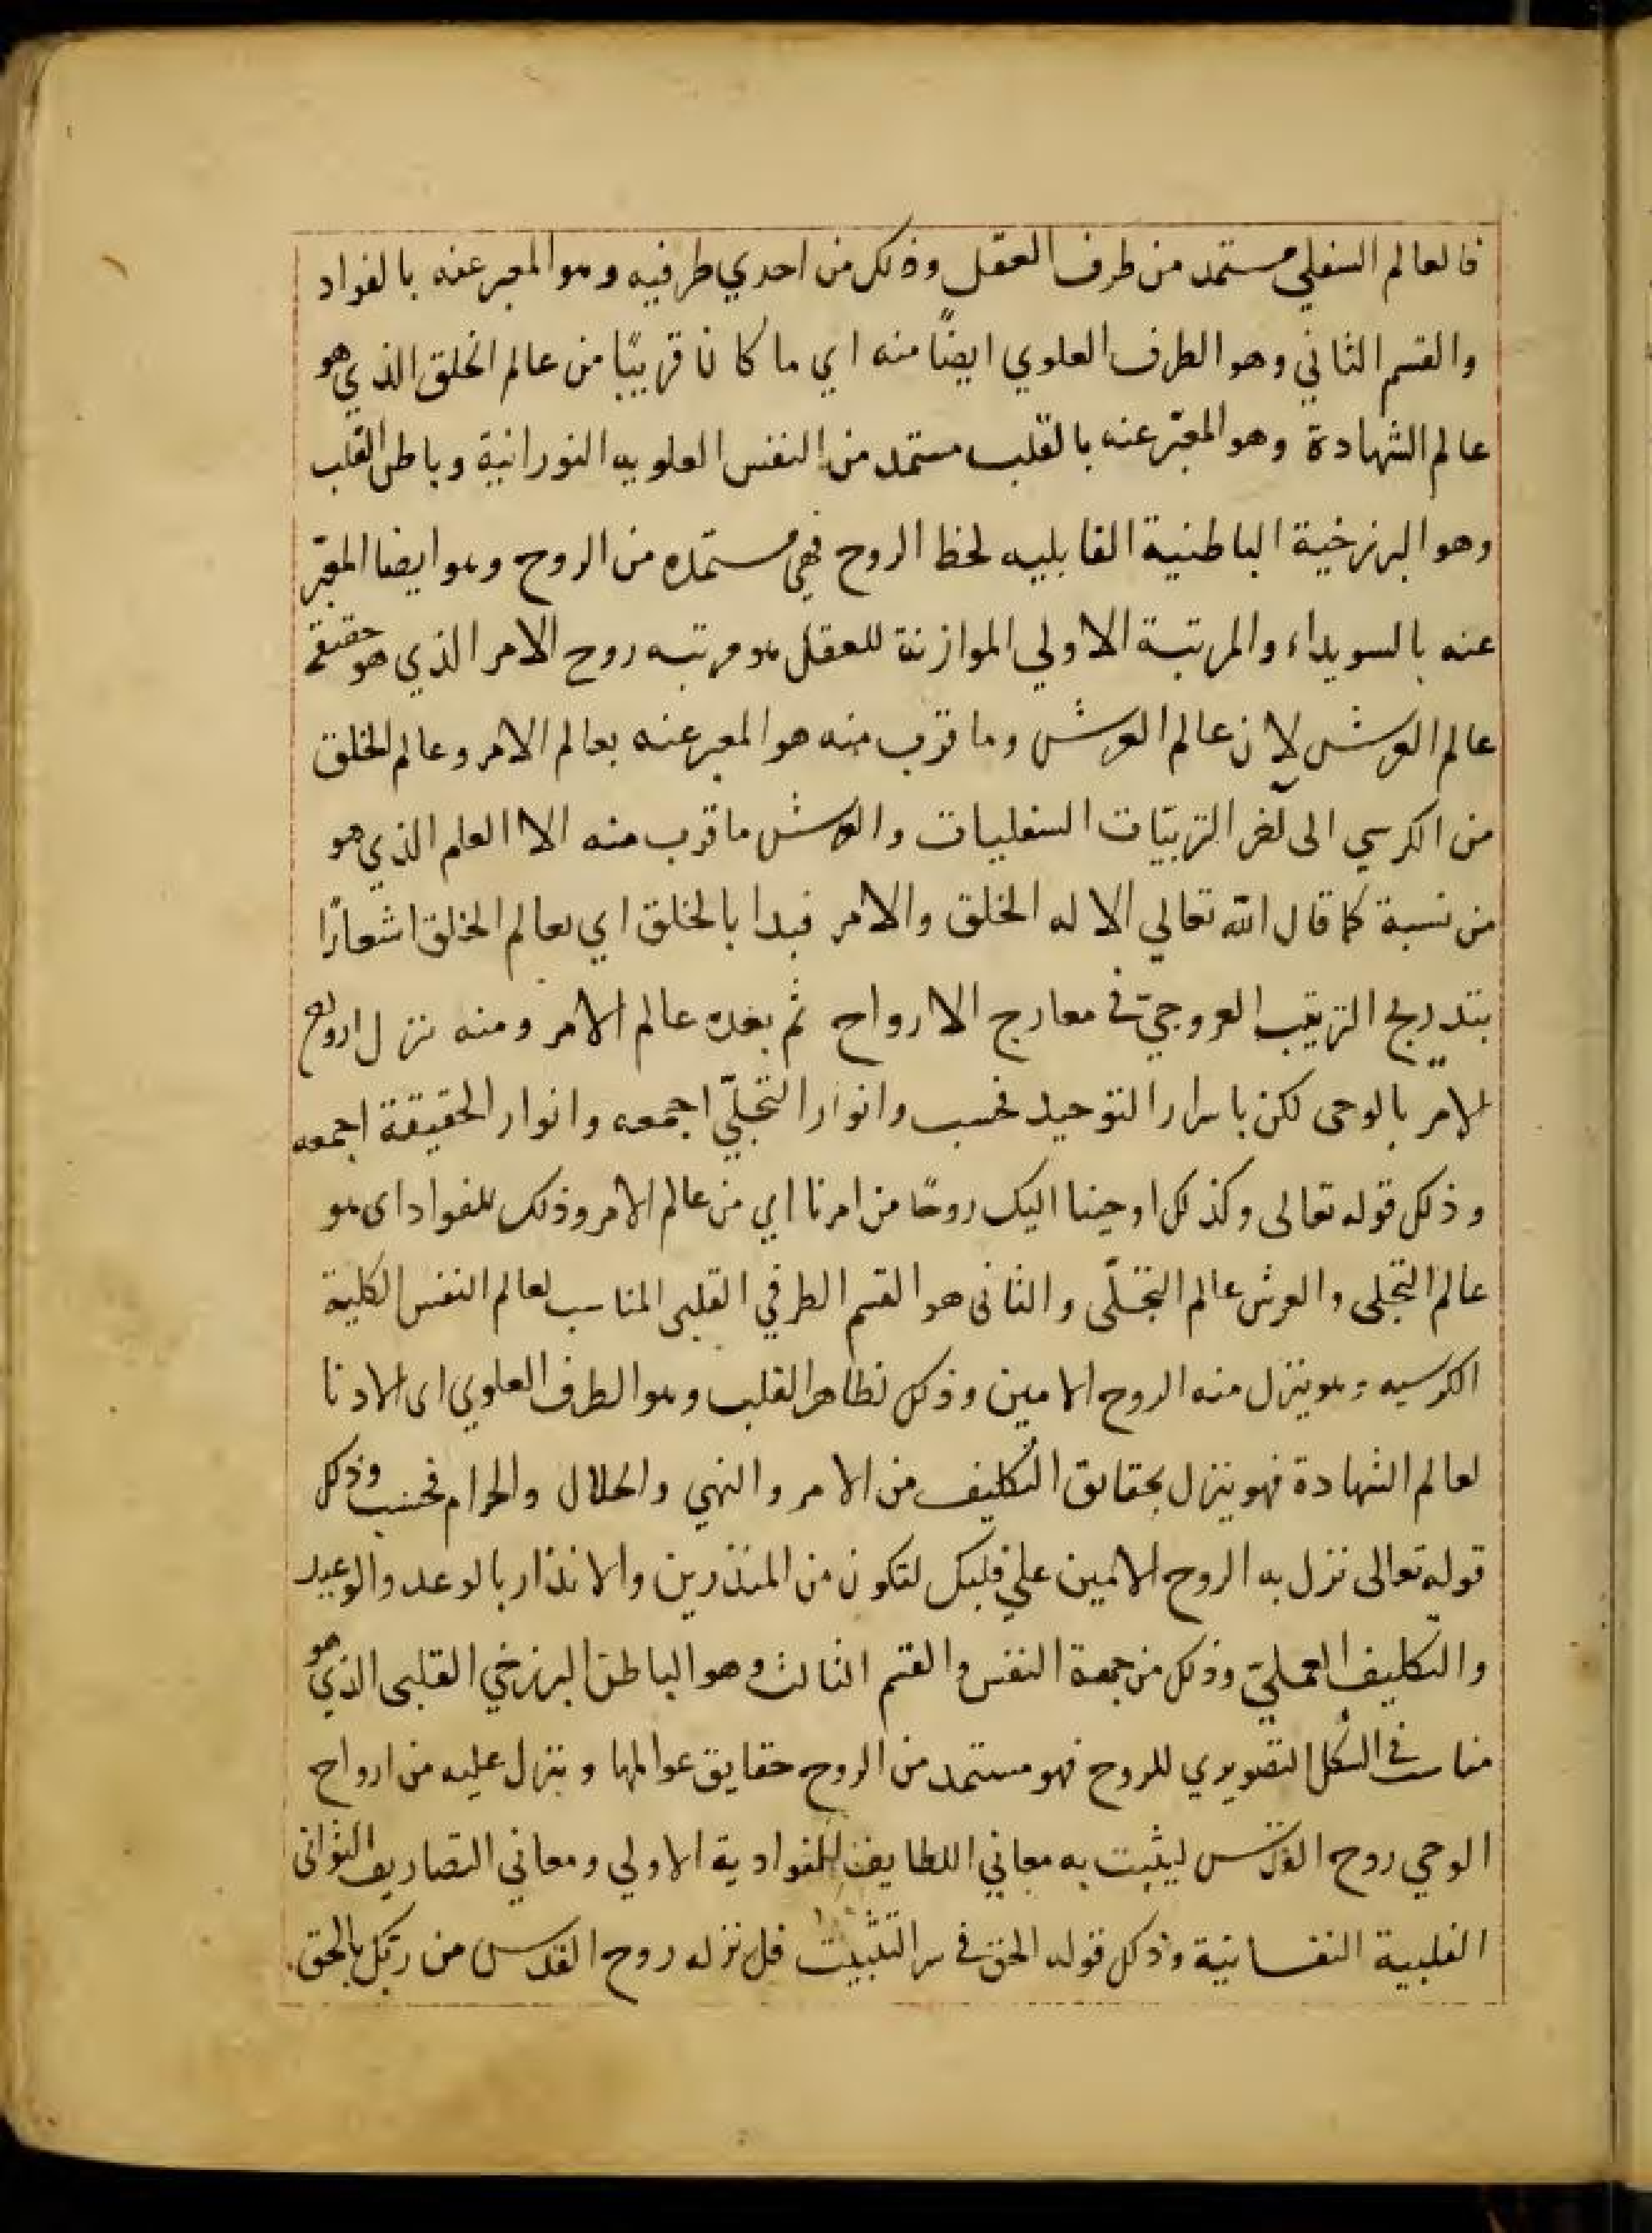 فالعالم السفلي مستمد من طرف العقل وذلك من احدي طرفيه وهو المعبر عنه بالفواد
والقسم الثاني وهو الطرف العلوي ايضًا منه اي ما كانا قريبًا من عالم الخلق الذي هو
عالم الشهادة وهو المعبّر عنه بالقلب مستمد من النفس العلويه النورانية وباطن القلب
وهو البرزخية الباطنية القابليه لحظ الروح فهي مستمده من الروح وهو ايضا المعبّر
عنه بالسويداء والمرتبة الاولي الموازنة للعقل هو مرتبه روح الامر الذي هو حقيقة
عالم العرش لان عالم العرش وما قرب منه هو المعبر عنه بعالم الامر وعالم الخلق
من الكرسي الى السفليات والعرش ما قرب منه الا العلم الذي هو
من نسبة كما قال الله تعالي الا له الخلق والامر فبدا بالخلق اي بعالم الخلق اشعارًا
بتدريج الترتيب العروجيّ في معارج الارواح ثم بعده عالم الامر ومنه نزل ارواح
الامر بالوحى لكن باسرار التوحيد فحسب وانوار التجلّي اجمعه وانوار الحقيقة اجمعه
وذلك قوله تعالى وكذلك اوحينا اليك روحًا من امرنا اي من عالم الامر وذلك للفواد اى هو
عالم التجلى والعرش عالم التجلّى والثانى هو القسم الطرفي القلبى المناسب لعالم النفس الكلية
الكرسيه وهو ينزل منه الروح الامين وذلك لظاهر القلب وهو الطرف العلوي اى الادنا
لعالم الشهادة فهو ينزل بحقايق التكليف من الامر والنهي والحلال والحرام فحسب وذلك
قوله تعالى نزل به الروح الامين علي قلبك لتكون من المنذرين والانذار بالوعد والوعيد
والتكليف العمليّ وذلك من جهة النفس والقسم الثالث وهو الباطن البرزخي القلبى الذي هو
مناسب في الشكل التصويري للروح فهو مستمد من الروح حقايق عوالمها وينزل عليه من ارواح
الوحي روح القدس ليثبت به معاني اللطايف الفوادية الاولي ومعاني التصاريف الثوانى
القلبية النفسانية وذلك قوله الحق في سر التثبيت قل نزله روح القدس من ربك بالحق